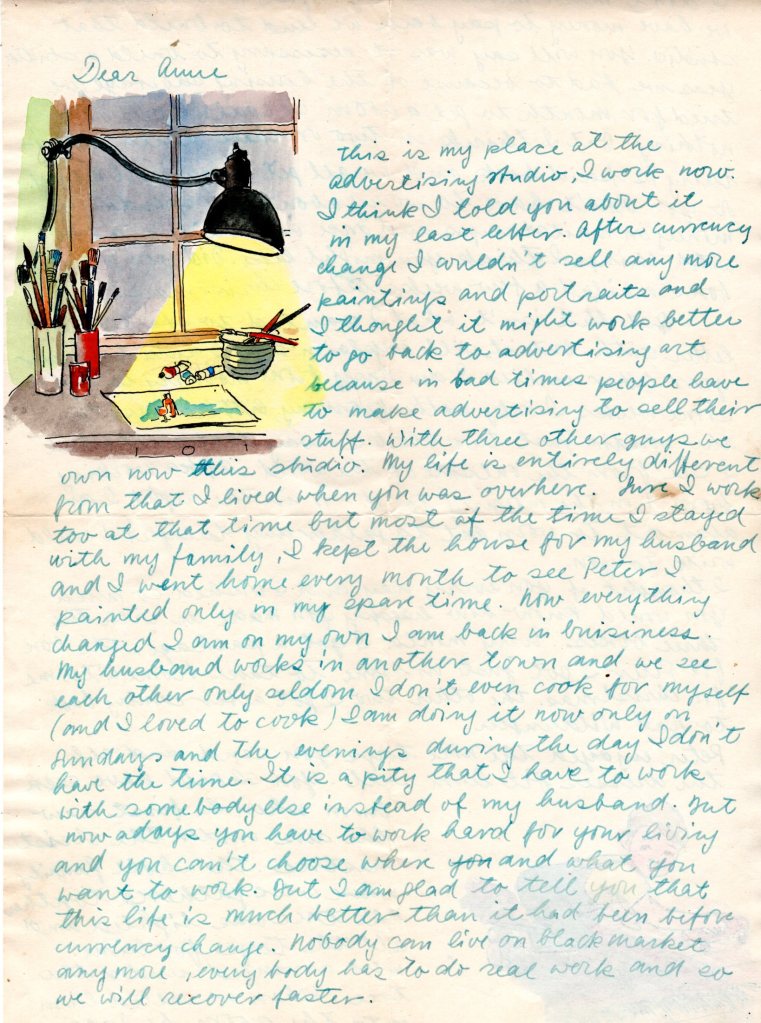 Dear Anne
This is my place at the
advertising studio, I work now.
I think I told you about it
in my last letter. After currency
change I wouldn't sell any more
paintings and portraits and
I thought it might work better
to go back to advertising art
because in bad times people have
to make advertising to sell their
stuff. With three other guys we
own now this studio. My life is entirely different
from that I lived when you was overhere. Sure I work
too at that time but most of the time I stayed
with my family, I kept the house for my husband
and I went home every month to see Peter I
painted only in my spare time. Now everything
changed I am on my own I am back in buisiness.
My husband works in another town and we see
each other only seldom I don't even cook for myself
(and I loved to cook) I am doing it now only on
Sundays and the evenings during the day I don't
have the time. It is a pity that I have to work
with somebody else instead of my husband. But
nowadays you have to work hard for your living
and you can't choose where you and what you
want to work. But I am glad to tell you that
this life is much better than it had been before
currency change. Nobody can live on black market
any more, everybody has to do real work and so
we will recover faster.